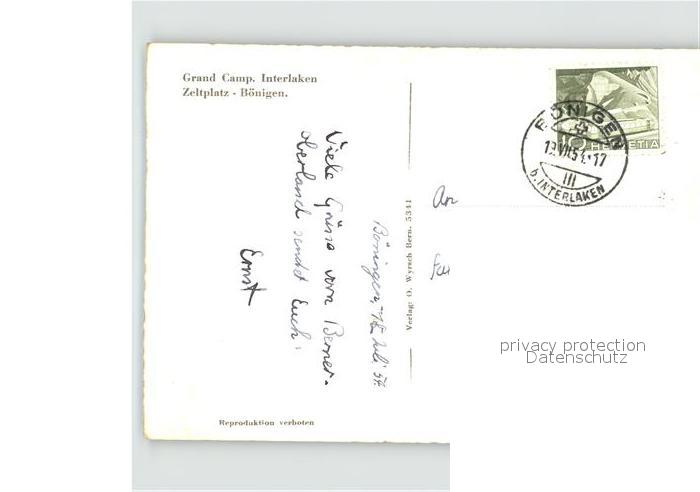 Grand Camp. Interlaken
Zeltplatz - Bönigen.
HELVETIA
BÖNIGEN
VII 54-17
III
b. INTERLAKEN
Böningen, Juli 54.
Viele Grüsse vom Berner-
oberland sendet Euch:
Ernst
Verlag: O. Wyrsch Bern. 5341
An
Reproduktion verboten
privacy protection
Datenschutz